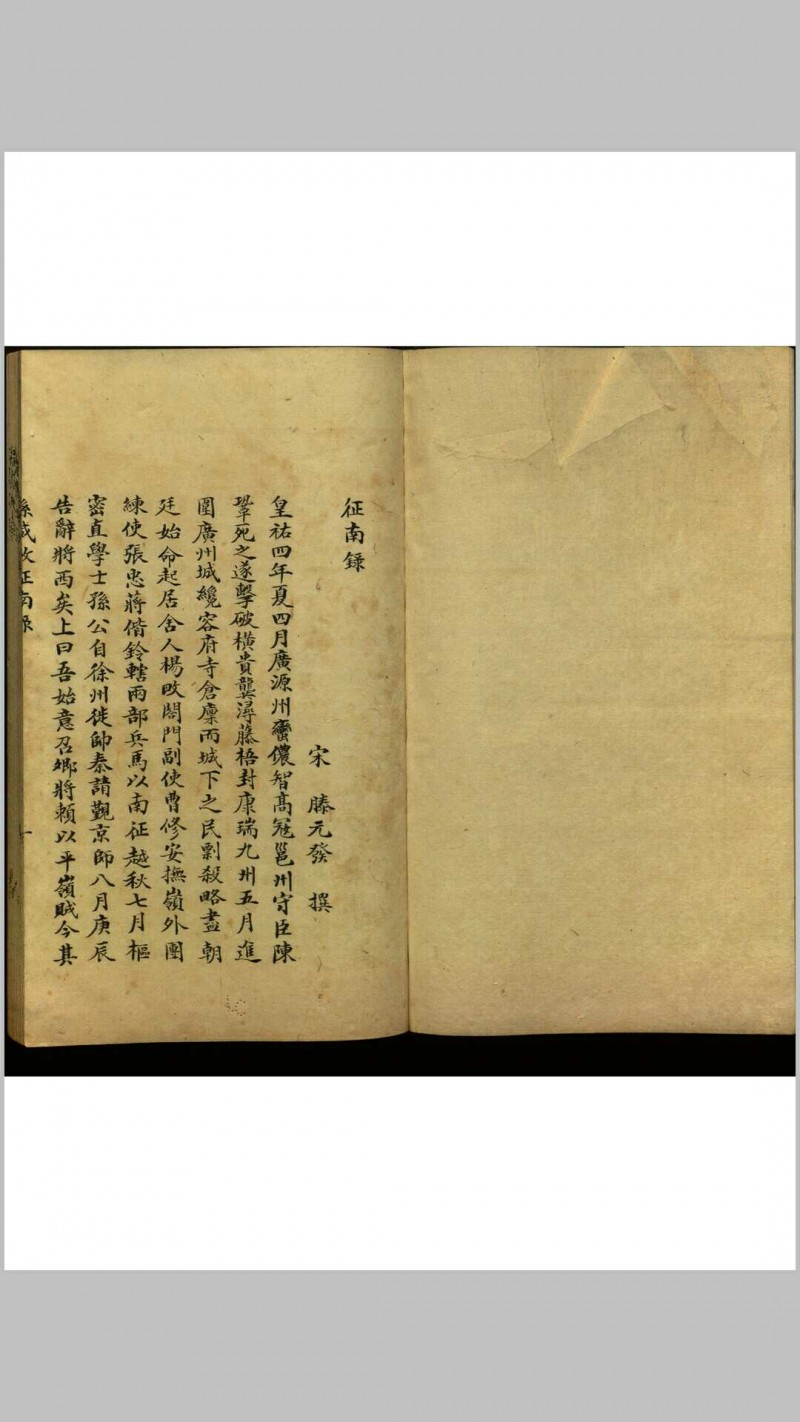 征南録
宋　滕元發　撰
皇祐四年夏四月廣源州蠻儂智高冦邕州守臣陳
鞏死之遂擊破橫貴龔潯藤梧封康瑞九州五月進
圍廣州城纔容府寺倉廩而城下之民剽殺略盡朝
廷始命起居舍人楊畋閤門副使曹修安撫嶺外團
練使張忠蔣偕鈐轄兩部兵馬以南征越秋七月樞
密直學士孫公自徐州徙帥秦請覲京師八月庚辰
告辭將西矣上曰吾始意召鄉將賴以平嶺賊今其
孫威敏征南录　一